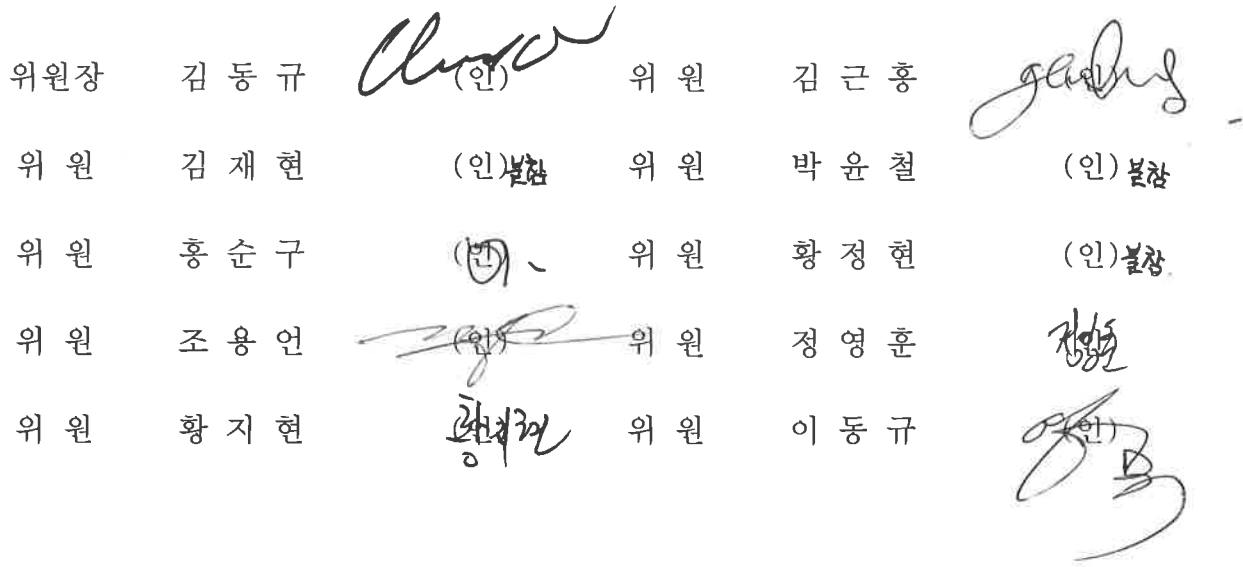 위원장 김 동 규 (인) 위 원 김 근 홍
위 원 김 재 현 (인)불참 위 원 박 윤 철 (인)불참
위 원 홍 순 구 (인) 위 원 황 정 현 (인)불참
위 원 조 용 언 (인) 위 원 정 영 훈 정영훈
위 원 황 지 현 황지현 위 원 이 동 규 (인)